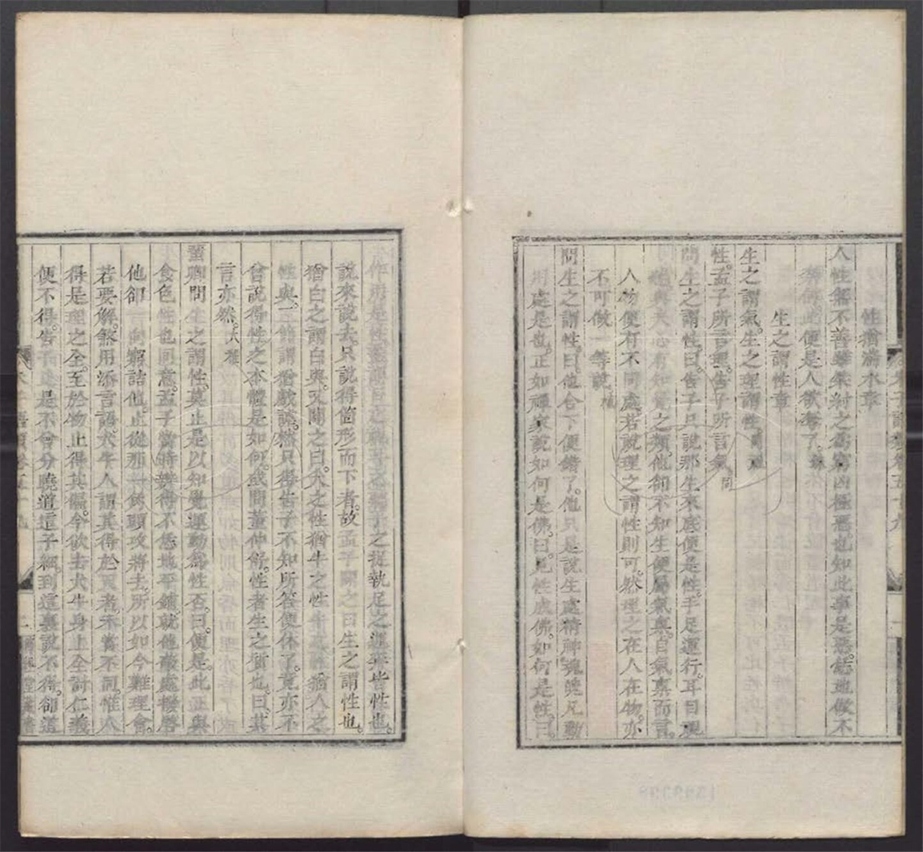 性猶湍水章
人性無不善雖桀紂之為窮凶極惡也知此事是惡恁地做不
便是人欲奪了
生之謂性章
生之謂氣生之理謂性
性孟子所言理告子所言氣同
問生之謂性曰告子只說那生來底便是性手足運行耳目視
聽與夫心有知覺之類他卻不知生便屬氣稟自氣稟而言
人物便有不同處若說理之謂性則可然理之在人在物亦
不可做一等說
問生之謂性曰他合下便錯了他只是說生處精神魂魄凡動
用處是也正如禪家說如何是佛曰見性成佛如何是性曰
作用是性蓋謂目之視耳之聽手之捉執足之運奔皆性也
說來說去只說得箇形而下者故孟子闢之曰生之謂性也
猶白之謂白與又闢之曰犬之性猶牛之性牛之性猶人之
性與三節謂猶戲謔然只得告子不知所答便休了竟亦不
曾說得性之本體是如何或問董仲舒性者生之質也曰其
言亦然大雅
蜚卿問生之謂性莫止是以知覺運動為性否曰便是此正與
食色性也同意孟子當時辨得不恁地平鋪就他蔽處撥啓
他卻一向窮詰他止從那一角頭攻將去所以如今難理會
若要解煞用添言語犬牛人謂其得於天者未嘗不同惟人
得是理之全至於物止得其偏今欲去犬牛身上全討仁義
便不得告子止是不曾分曉道這子細到這裏說不得卻道